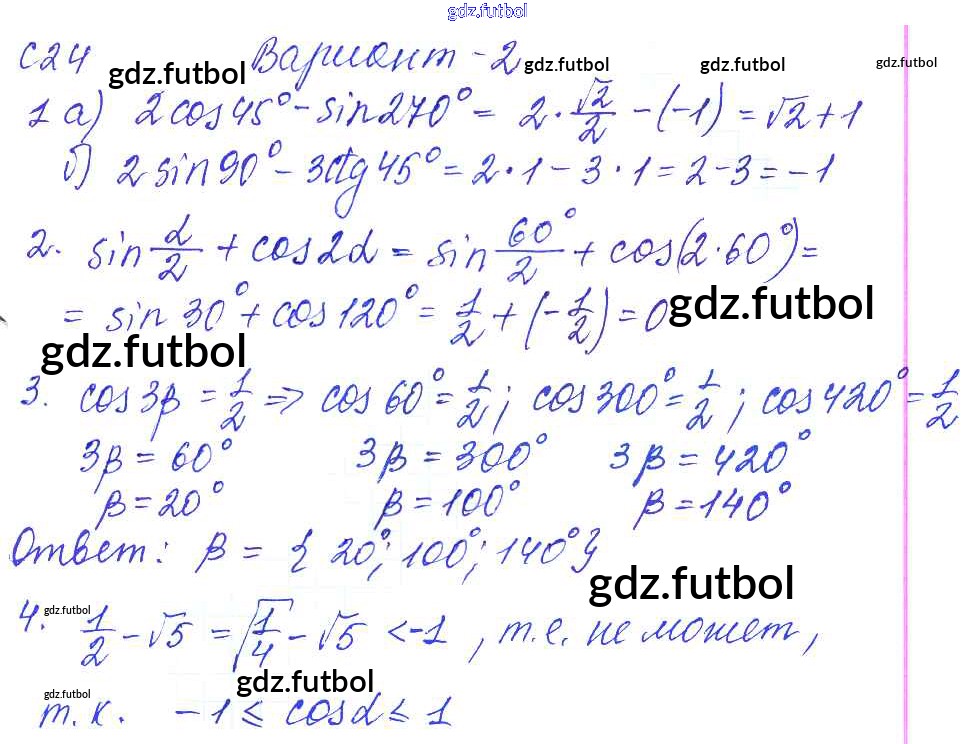 gdz.futbol
С24 Вариант - 2
gdz.futbol gdz.futbol gdz.futbol gdz.futbol
1 а) 2cos45° - sin270° = 2 · √2/2 - (-1) = √2 + 1
б) 2 sin90° - 3ctg45° = 2 · 1 - 3 · 1 = 2 - 3 = -1
2. sin α/2 + cos2α = sin 60°/2 + cos(2 · 60°) =
= sin 30° + cos120° = 1/2 + (-1/2) = 0
gdz.futbol
gdz.futbol
3. cos3β = 1/2 => cos60° = 1/2; cos300° = 1/2; cos420° = 1/2
3β = 60° 3β = 300° 3β = 420°
β = 20° β = 100° β = 140°
Ответ: β = {20°; 100°; 140°}
gdz.futbol
gdz.futbol
4. 1/2 - √5 = √1/4 - √5 < -1, т.е. не может,
gdz.futbol
gdz.futbol
т.к. -1 ≤ cosα ≤ 1